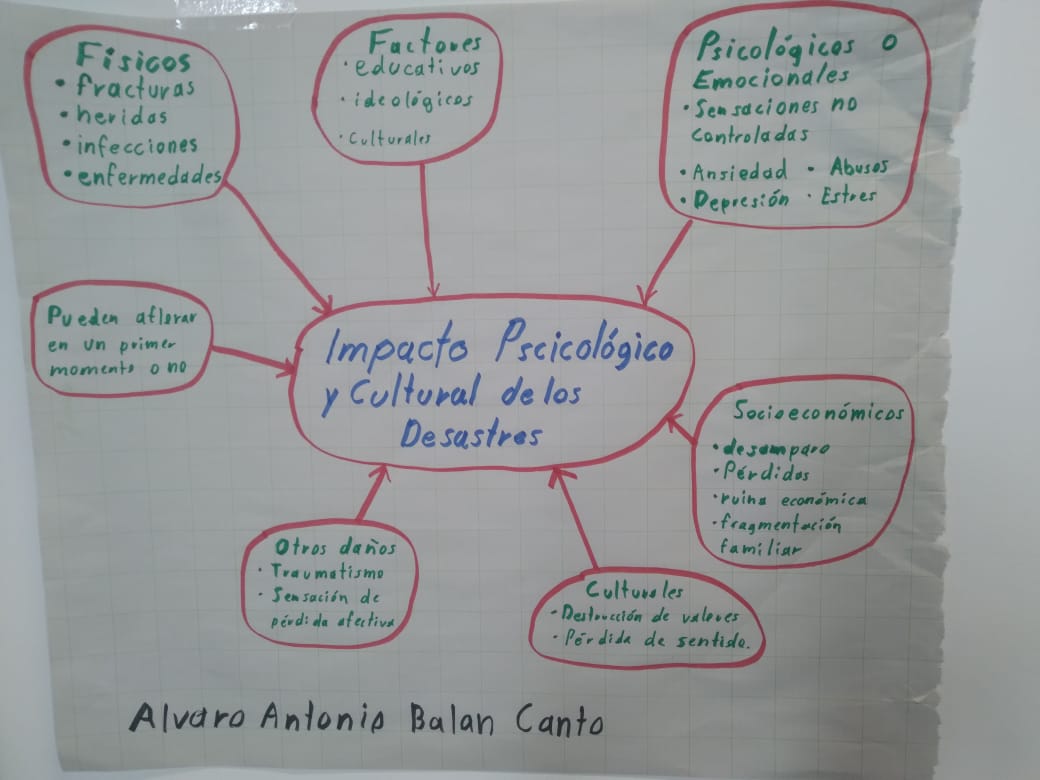 Físicos
• fracturas
• heridas
• infecciones
• enfermedades
Factores
• educativos
• ideológicos
• Culturales
Psicológicos o
Emocionales
• Sensaciones no
controladas
• Ansiedad • Abusos
• Depresión • Estres
Pueden aflorar
en un primer
momento o no
Impacto Pscicológico
y Cultural de los
Desastres
Socioeconómicos
• desamparo
• Pérdidas
• ruina económica
• fragmentación
familiar
Otros daños
• Traumatismo
• Sensación de
pérdida afectiva
Culturales
• Destrucción de valores
• Pérdida de sentido.
Alvaro Antonio Balan Canto